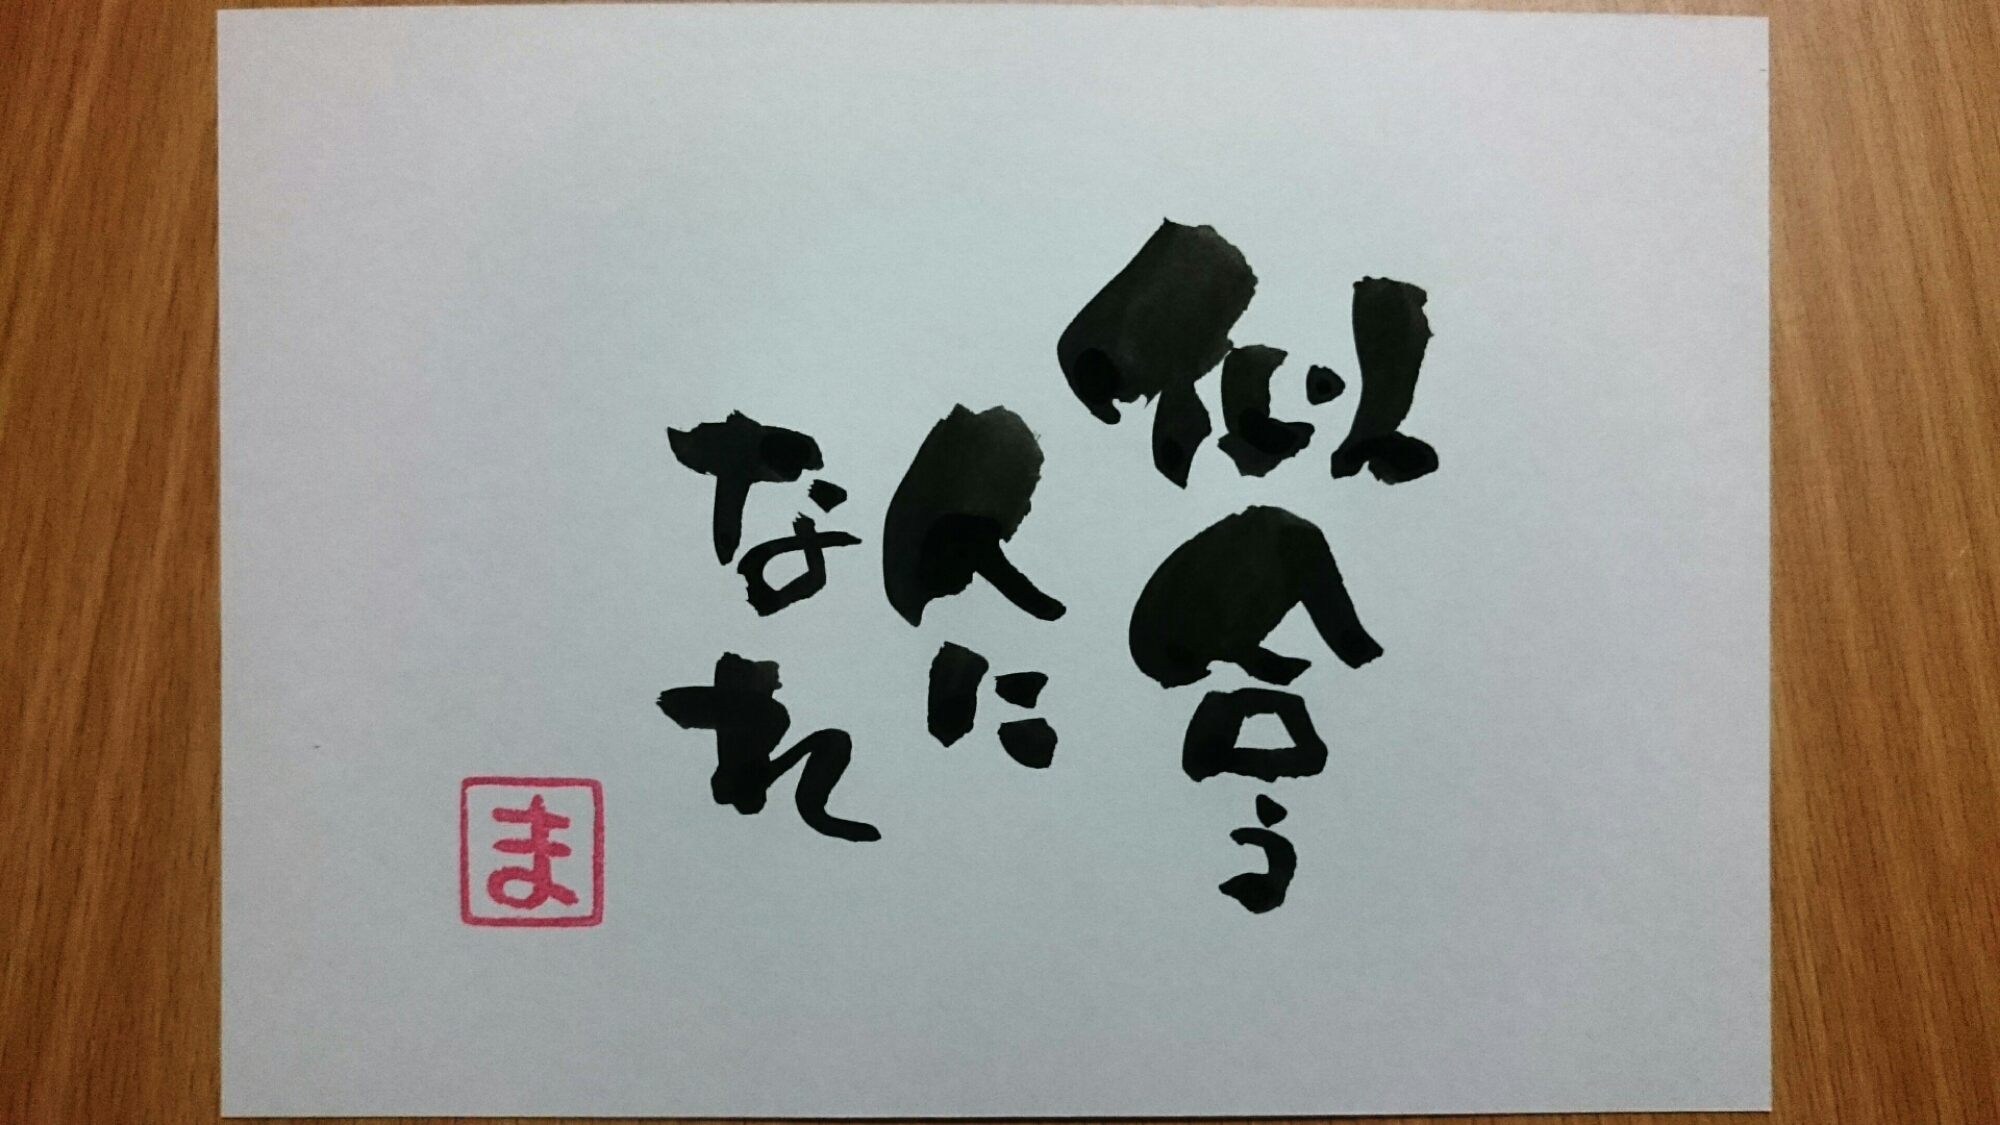 似合う
人に
なれ
ま